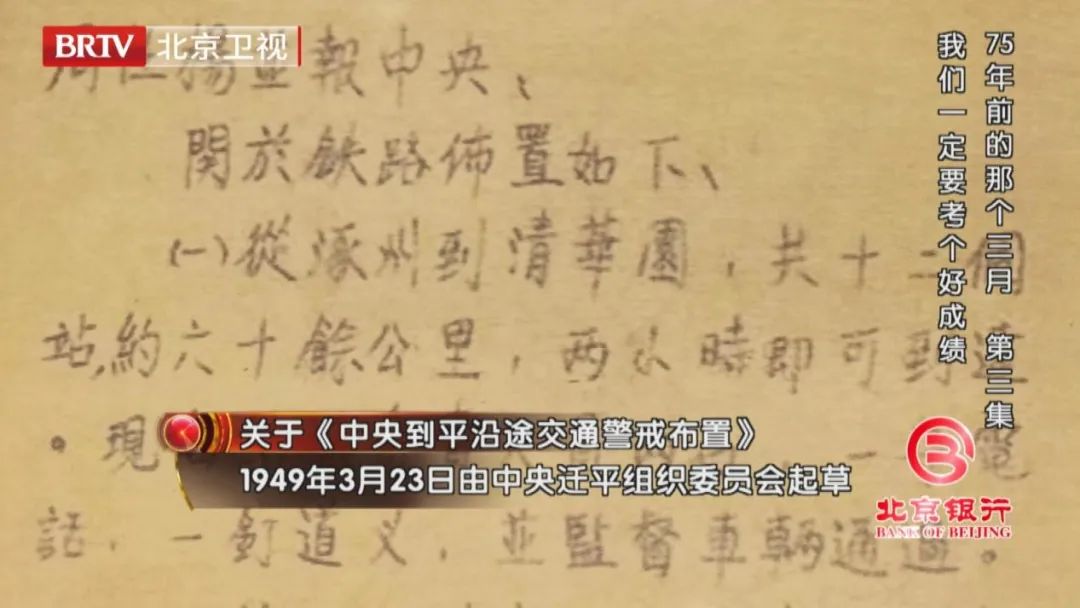 BRTV 北京卫视
周任揚並報中央、
関於鉄路佈置如下、
(一)從涿州到清華園，共十二個
站，約六十餘公里，两小時即可到達
。現
電
話，一
道义，並監督車輌通過。
关于《中央到平沿途交通警戒布置》
1949年3月23日由中央迁平组织委员会起草
75年前的那个三月 第三集
我们一定要考个好成绩
北京银行
BANK OF BEIJING